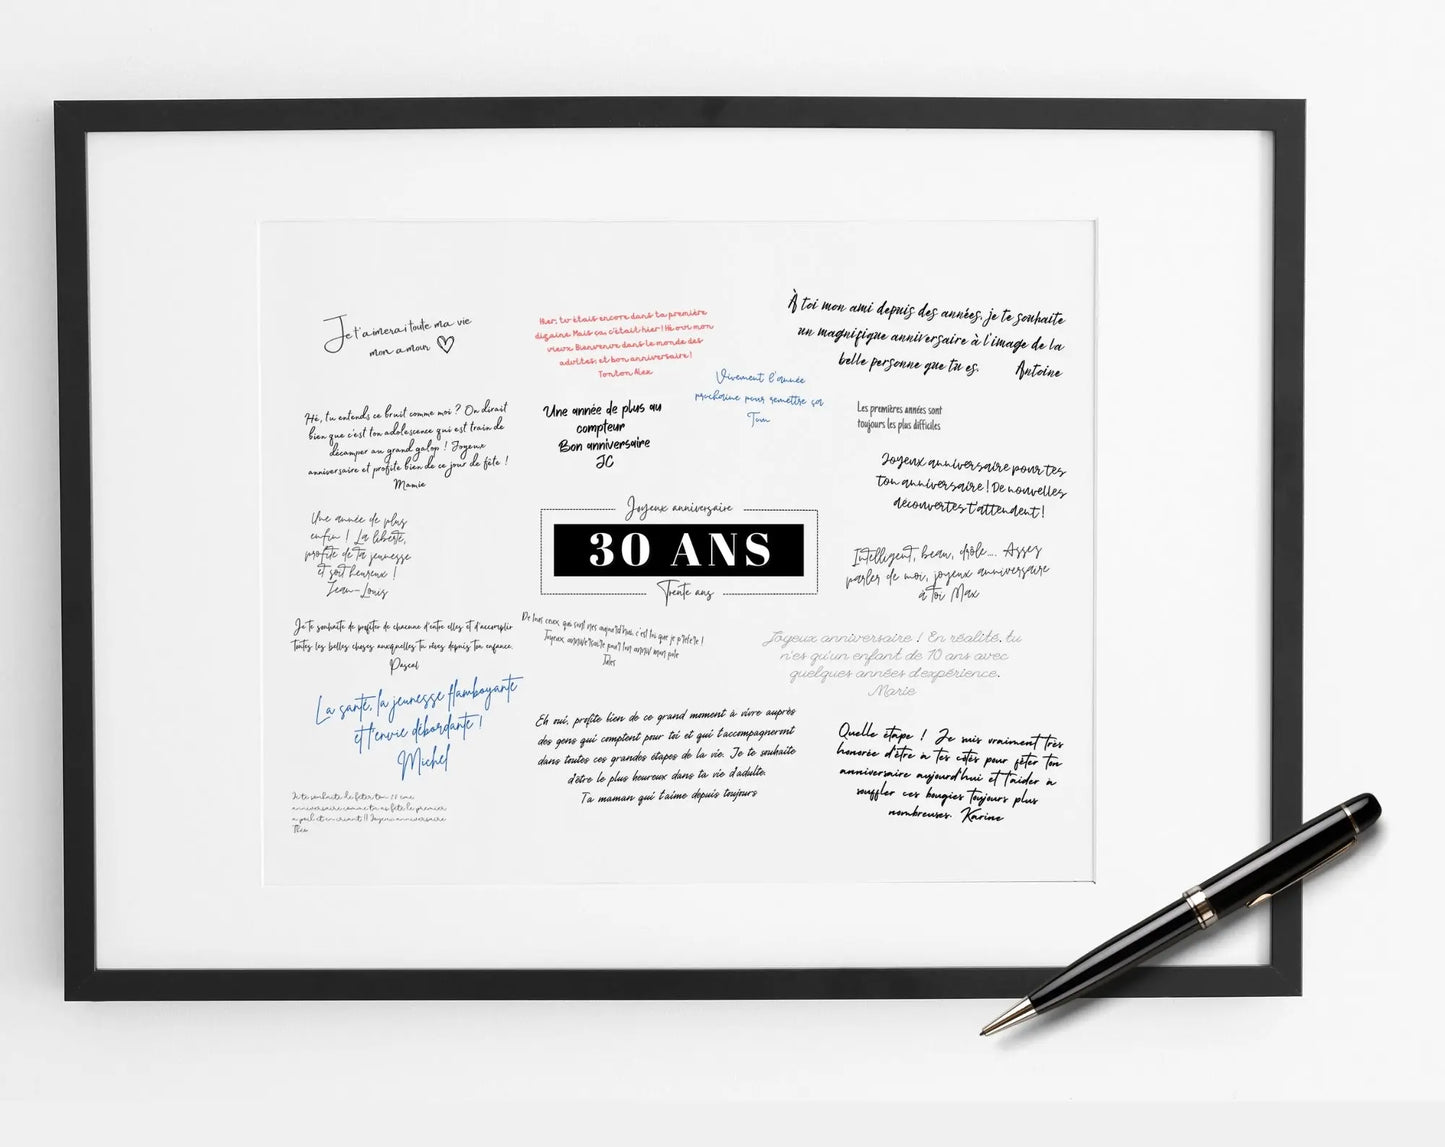 Je t'aimerai toute ma vie
mon amour
Hier, tu étais encore dans ta première
dizaine. Mais ça, c'était hier ! Hé oui mon
vieux. Bienvenue dans le monde des
adultes, et bon anniversaire !
Tonton Alex
À toi mon ami depuis des années, je te souhaite
un magnifique anniversaire à l'image de la
belle personne que tu es. Antoine
Vivement l'année
prochaine pour remettre ça
Tom
Hé, tu entends ce bruit comme moi ? On dirait
bien que c'est ton adolescence qui est train de
décamper au grand galop ! Joyeux
anniversaire et profite bien de ce jour de fête !
Mamie
Une année de plus au
compteur
Bon anniversaire
JC
Les premières années sont
toujours les plus difficiles
Joyeux anniversaire pour tes
ton anniversaire ! De nouvelles
découvertes t'attendent !
Une année de plus
enfin ! La liberté,
profite de ta jeunesse
et soit heureux !
Jean-Louis
Joyeux anniversaire
30 ANS
Trente ans
Intelligent, beau, drôle.... Assez
parler de moi, joyeux anniversaire
à toi Max
Je te souhaite de profiter de chacune d'entre elles et d'accomplir
toutes les belles choses auxquelles tu rêves depuis ton enfance.
Pascal
De tous ceux, qui sont nés aujourd'hui, c'est toi que je préfère !
Joyeux anniversaire pour ton anniv mon pote
Jules
Joyeux anniversaire ! En réalité, tu
n'es qu'un enfant de 10 ans avec
quelques années d'expérience.
Marie
La santé, la jeunesse flamboyante
et l'envie débordante !
Michel
Eh oui, profite bien de ce grand moment à vivre auprès
des gens qui comptent pour toi et qui t'accompagneront
dans toutes ces grandes étapes de la vie. Je te souhaite
d'être le plus heureux dans ta vie d'adulte.
Ta maman qui t'aime depuis toujours
Quelle étape ! Je suis vraiment très
honorée d'être à tes côtés pour fêter ton
anniversaire aujourd'hui et t'aider à
souffler ces bougies toujours plus
nombreuses. Karine
Je te souhaite de fêter ton
anniversaire comme tu as fêté le premier
à poil et en criant !! Joyeux anniversaire
Théo